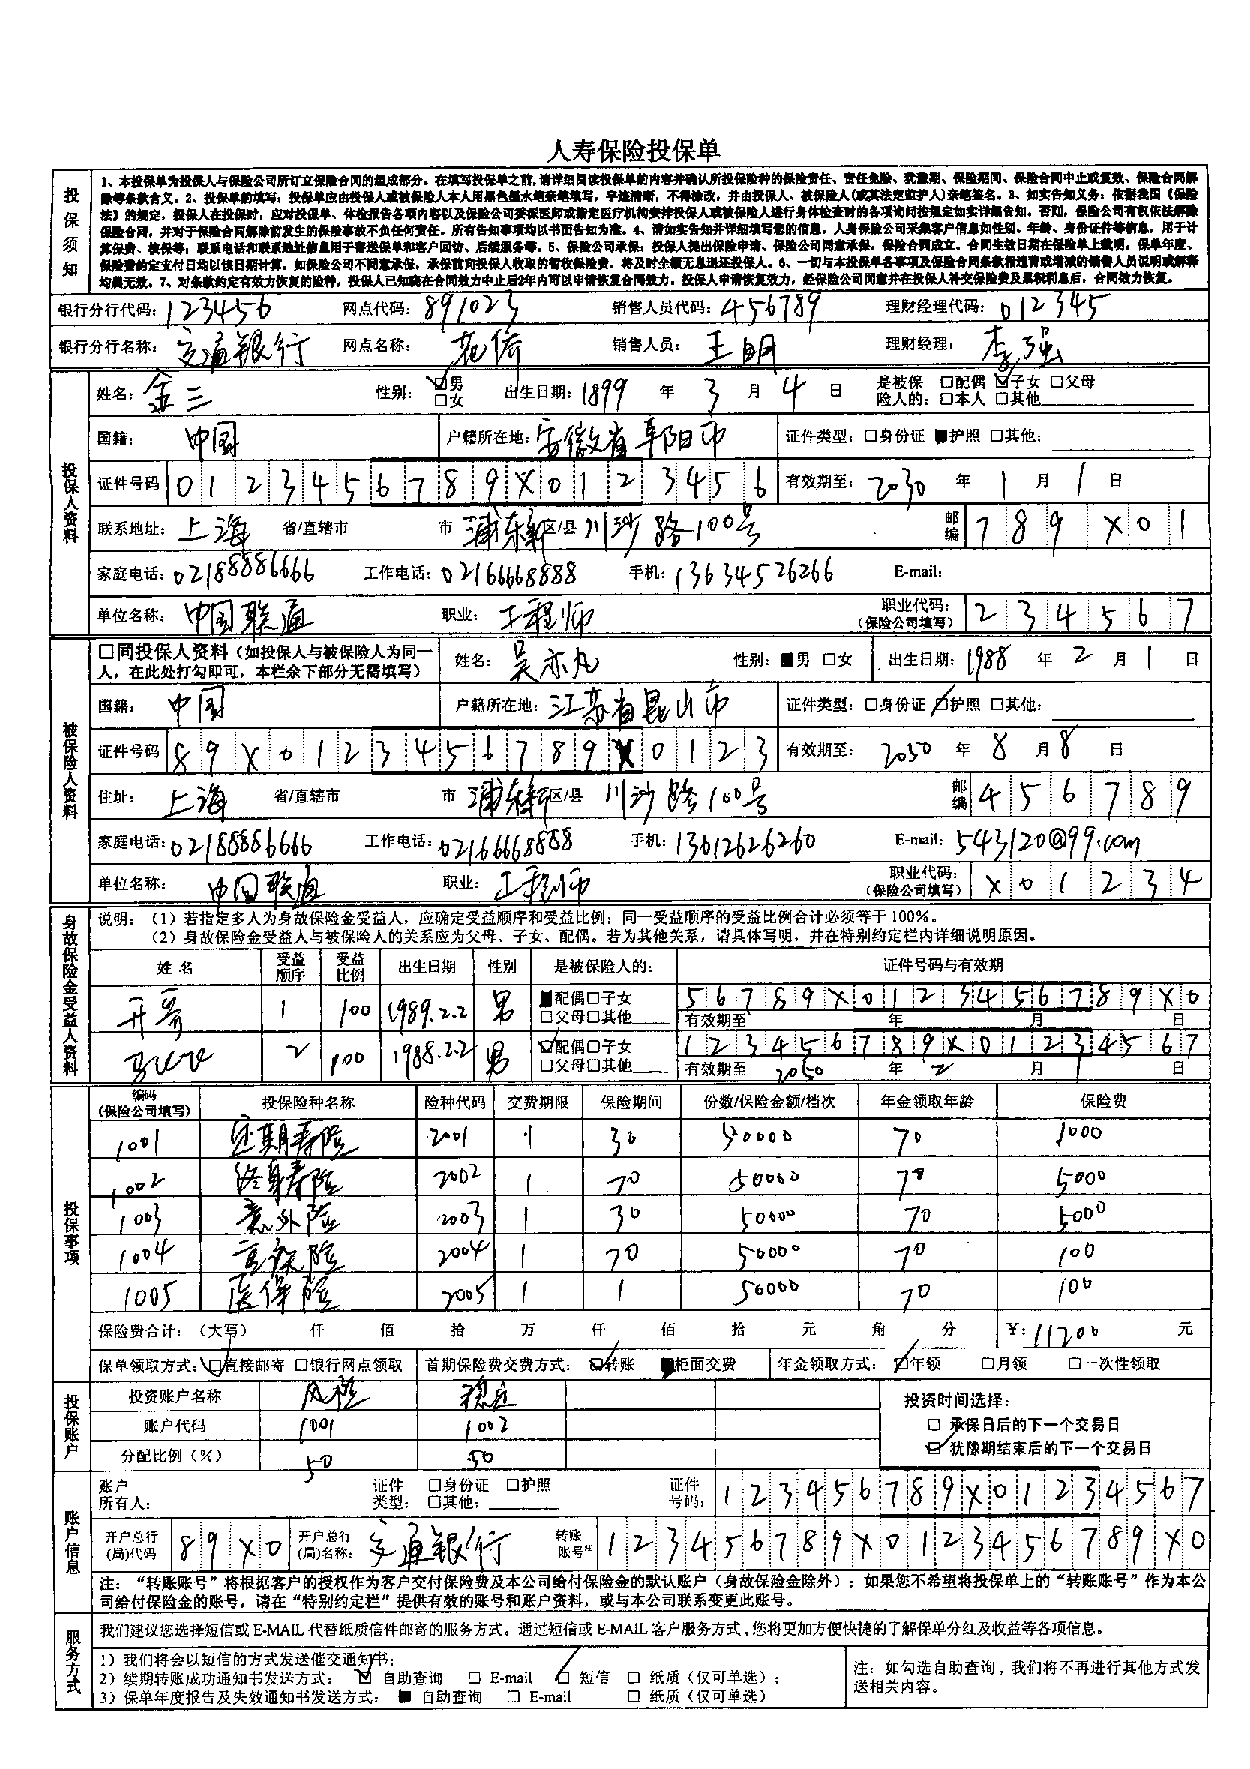 人寿保险投保单
投保须知
1、本投保单为投保人与保险公司所订立保险合同的组成部分。在填写投保单之前，请详细阅读投保单的内容并确认所投保险种的保险责任、责任免除、犹豫期、保险期间、保险合同中止或复效、保险合同解
除等条款含义。2、投保单的填写：投保单应由投保人或被保险人本人用黑色墨水笔亲笔填写，字迹清晰，不得涂改，并由投保人、被保险人（或其法定监护人）亲笔签名。3、如实告知义务：依据我国《保险
法》的规定，投保人在投保时，应对投保单、体检报告各项内容以及保险公司委派医师或指定医疗机构安排投保人或被保险人进行身体检查时的各项询问按规定如实详细告知，否则，保险公司有权依法解除
保险合同，并对于保险合同解除前发生的保险事故不负任何责任。所有告知事项均以书面告知为准。4、请如实告知并详细填写您的信息，人身保险公司采集客户信息如性别、年龄、身份证件等信息，用于计
算保费、核保等；联系电话和联系地址信息用于寄送保单和客户回访、后续服务等。5、保险公司承保：投保人提出保险申请、保险公司同意承保，保险合同成立。合同生效日期在保险单上载明，保单年度、
保险费约定支付日均以该日期计算。如保险公司不同意承保，承保前向投保人收取的暂收保险费，将及时全额无息退还投保人。6、一切与本投保单各事项及保险合同条款相违背或增减的销售人员说明或解释
均属无效。7、对条款约定有效力恢复的险种，投保人已知晓在合同效力中止后2年内可以申请恢复合同效力。投保人申请恢复效力，经保险公司同意并在投保人补交保险费及累积利息后，合同效力恢复。
银行分行代码：123456 网点代码：891023 销售人员代码：456789 理财经理代码：012345
银行分行名称：交通银行 网点名称：花侨 销售人员：王明 理财经理：李强
投保人资料
姓名：金三 性别：☑男 □女 出生日期：1899 年 3 月 4 日 是被保险人的：□配偶 ☑子女 □父母 □本人 □其他
国籍：中国 户籍所在地：安徽省阜阳市 证件类型：□身份证 ■护照 □其他：
证件号码 0123456789X0123456 有效期至：2030 年 1 月 1 日
联系地址：上海 省/直辖市 市 浦东新区/县 川沙路100号 邮编 789X01
家庭电话：02188886666 工作电话：02166668888 手机：13634526266 E-mail：
单位名称：中国联通 职业：工程师 职业代码：（保险公司填写） 234567
被保险人资料
□同投保人资料（如投保人与被保险人为同一人，在此处打勾即可，本栏余下部分无需填写） 姓名：吴亦凡 性别：■男 □女 出生日期：1988 年 2 月 1 日
国籍：中国 户籍所在地：江苏省昆山市 证件类型：□身份证 ☑护照 □其他：
证件号码 89X0123456789X0123 有效期至：2050 年 8 月 8 日
住址：上海 省/直辖市 市 浦东新区/县 川沙路100号 邮编 456789
家庭电话：02188886666 工作电话：02166668888 手机：13612626260 E-mail：543120@99.com
单位名称：中国联通 职业：工程师 职业代码：（保险公司填写） X01234
身故保险金受益人资料
说明：（1）若指定多人为身故保险金受益人，应确定受益顺序和受益比例；同一受益顺序的受益比例合计必须等于100%。
（2）身故保险金受益人与被保险人的关系应为父母、子女、配偶。若为其他关系，请具体写明，并在特别约定栏内详细说明原因。
姓名 受益顺序 受益比例 出生日期 性别 是被保险人的： 证件号码与有效期
1 100 1989.2.2 男 ■配偶□子女 □父母□其他 56789X0123456789X0
有效期至 年 月 日
2 100 1988.2.2 男 ☑配偶□子女 □父母□其他 123456789X01234567
有效期至 2050 年 2 月 1 日
投保事项
编码（保险公司填写） 投保险种名称 险种代码 交费期限 保险期间 份数/保险金额/档次 年金领取年龄 保险费
1001 定期寿险 2001 1 30 50000 70 1000
1002 终身寿险 2002 1 70 50000 70 5000
1003 意外险 2003 1 30 50000 70 5000
1004 2004 1 70 50000 70 100
1005 医保险 2005 1 1 50000 70 100
保险费合计：（大写） 仟 佰 拾 万 仟 佰 拾 元 角 分 ￥：11200 元
保单领取方式：☑直接邮寄 □银行网点领取 首期保险费交费方式：☑转账 ■柜面交费 年金领取方式：☑年领 □月领 □一次性领取
投保账户
投资账户名称 稳定 投资时间选择：
账户代码 1001 1002 □ 承保日后的下一个交易日
分配比例（%） 50 50 ☑ 犹豫期结束后的下一个交易日
账户信息
账户所有人： 证件类型：□身份证 □护照 □其他： 证件号码：123456789X01234567
开户总行(局)代码 89X0 开户总行(局)名称：交通银行 转账账号* 123456789X0123456789X0
注：“转账账号”将根据客户的授权作为客户交付保险费及本公司给付保险金的默认账户（身故保险金除外）；如果您不希望将投保单上的“转账账号”作为本公
司给付保险金的账号，请在“特别约定栏”提供有效的账号和账户资料，或与本公司联系变更此账号。
服务方式
我们建议您选择短信或E-MAIL代替纸质信件邮寄的服务方式。通过短信或E-MAIL客户服务方式，您将更加方便快捷的了解保单分红及收益等各项信息。
1）我们将会以短信的方式发送催交通知书；
2）续期转账成功通知书发送方式：☑ 自助查询 □ E-mail ☑ 短信 □ 纸质（仅可单选）；
3）保单年度报告及失效通知书发送方式：■ 自助查询 □ E-mail □ 纸质（仅可单选）
注：如勾选自助查询，我们将不再进行其他方式发
送相关内容。